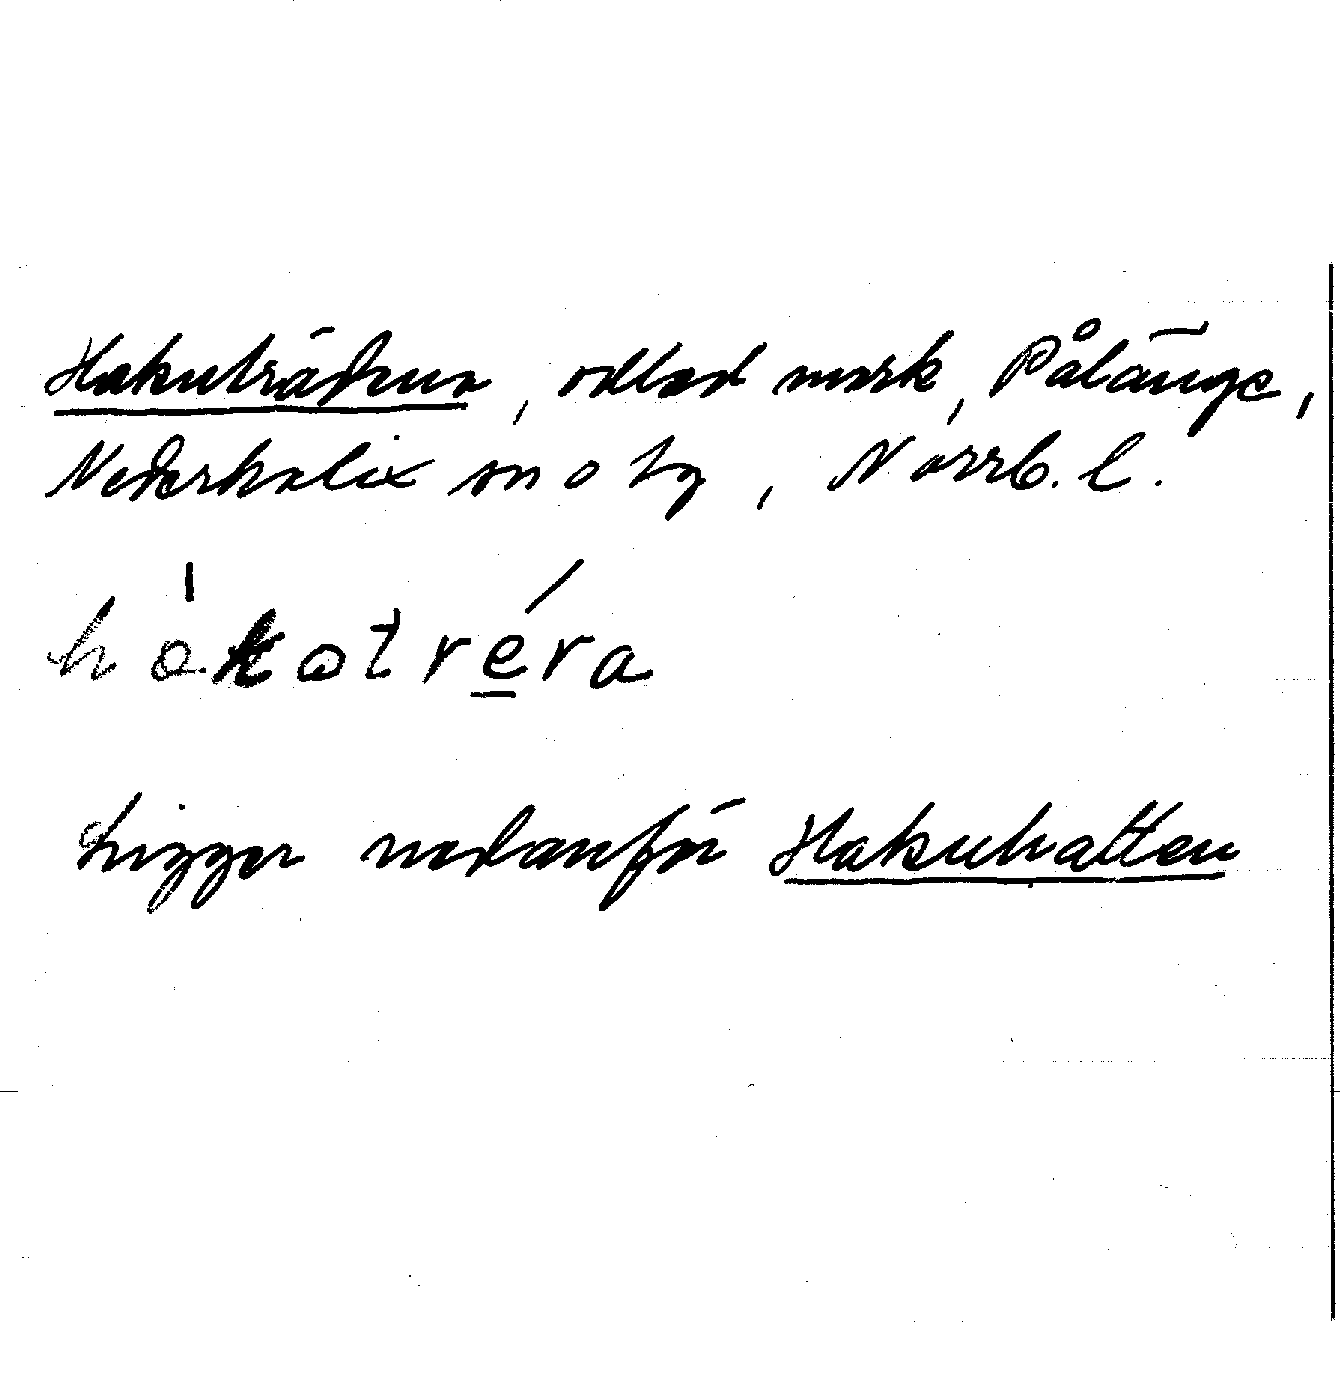 Hakuträdena, odlad mark, Pålänge,
Nederkalix sn o tg, Norrb. l.
hȧkotréra
Ligger nedanför Hakuhatten